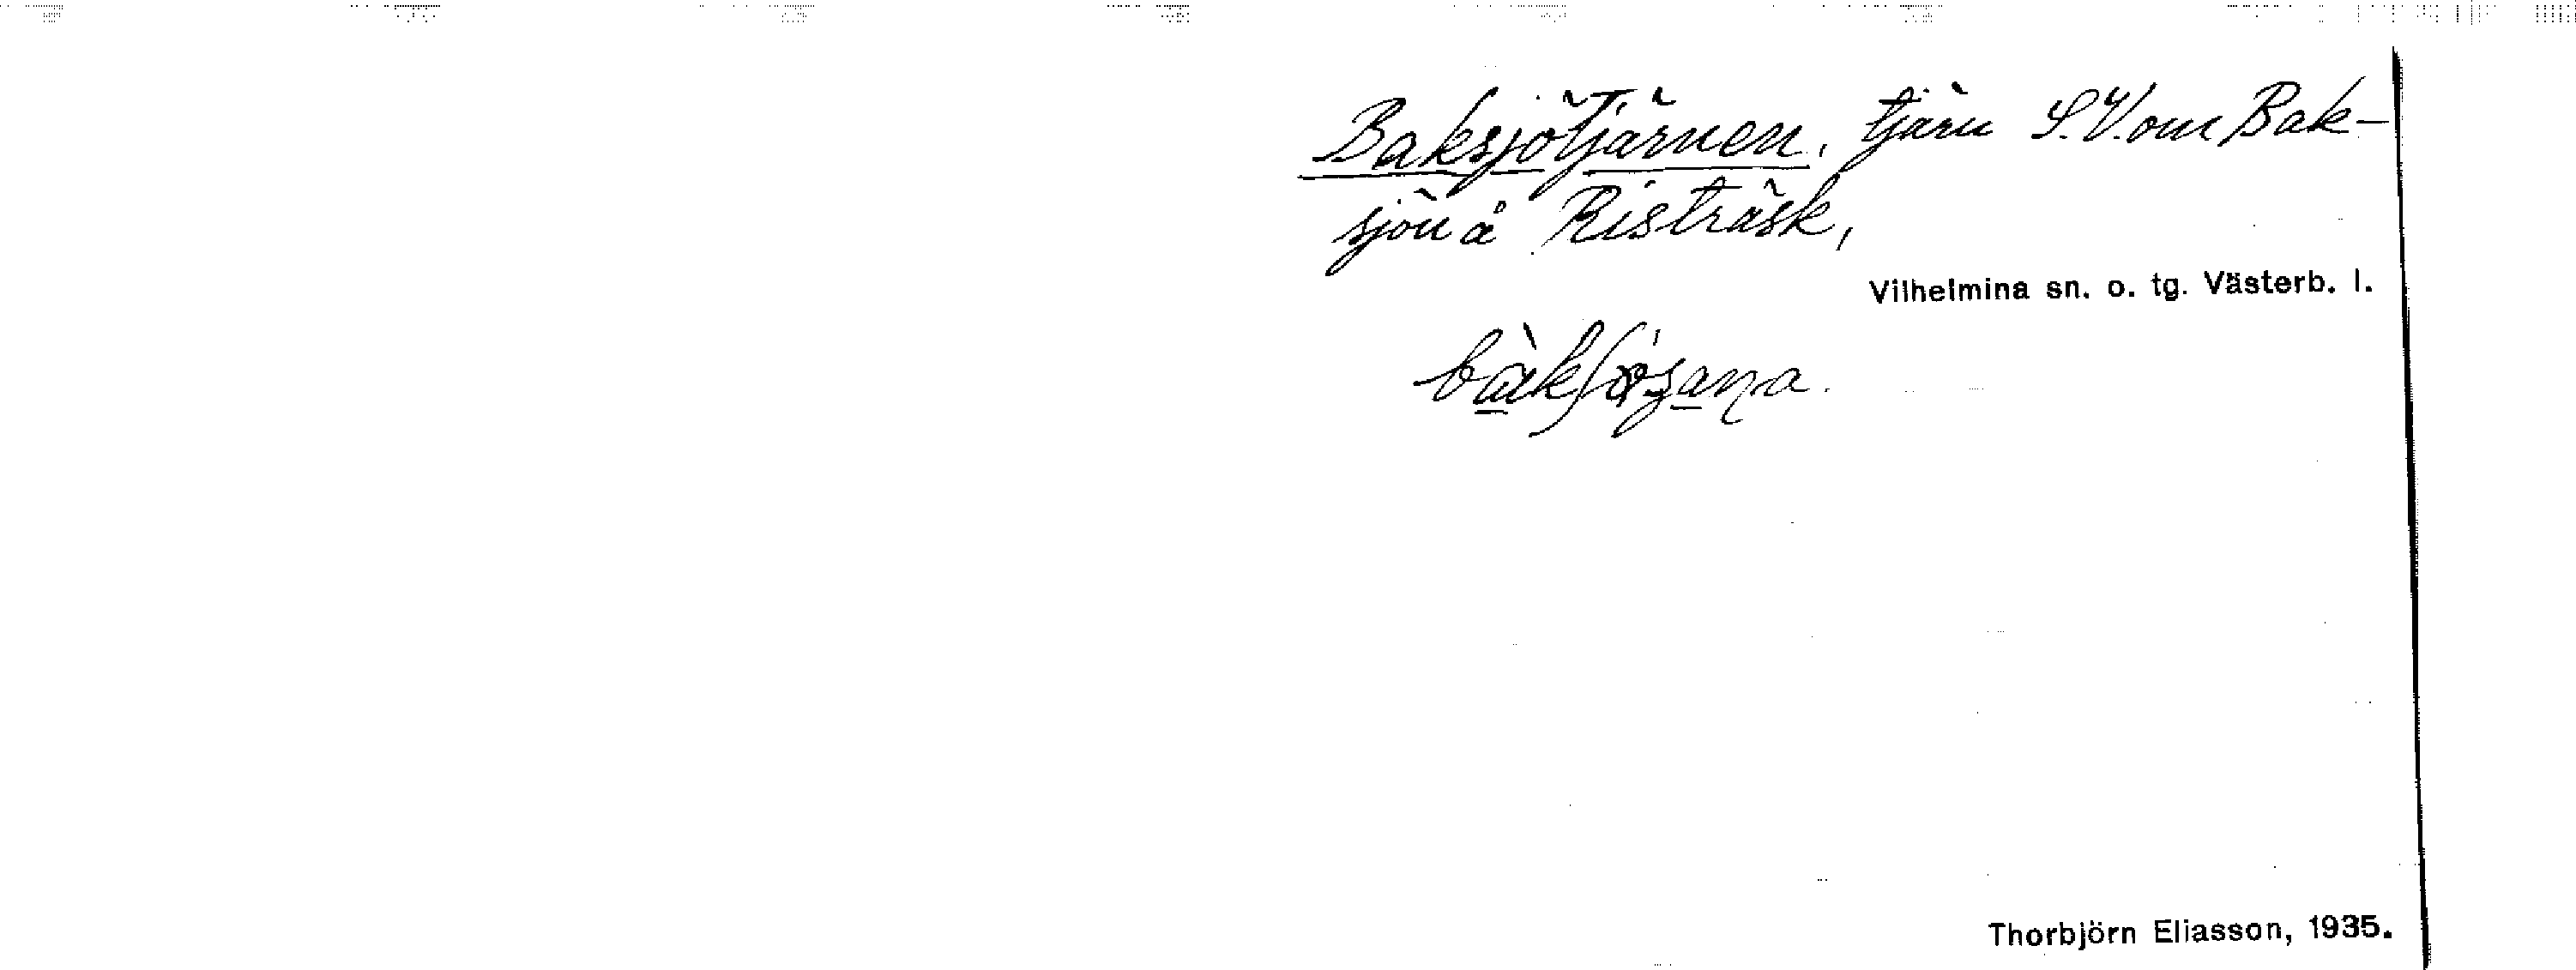 Baksjötjärnen, tjärn S.V. om Bak-
sjön å Risträsk,
Vilhelmina sn. o. tg. Västerb. l.
Thorbjörn Eliasson, 1935.